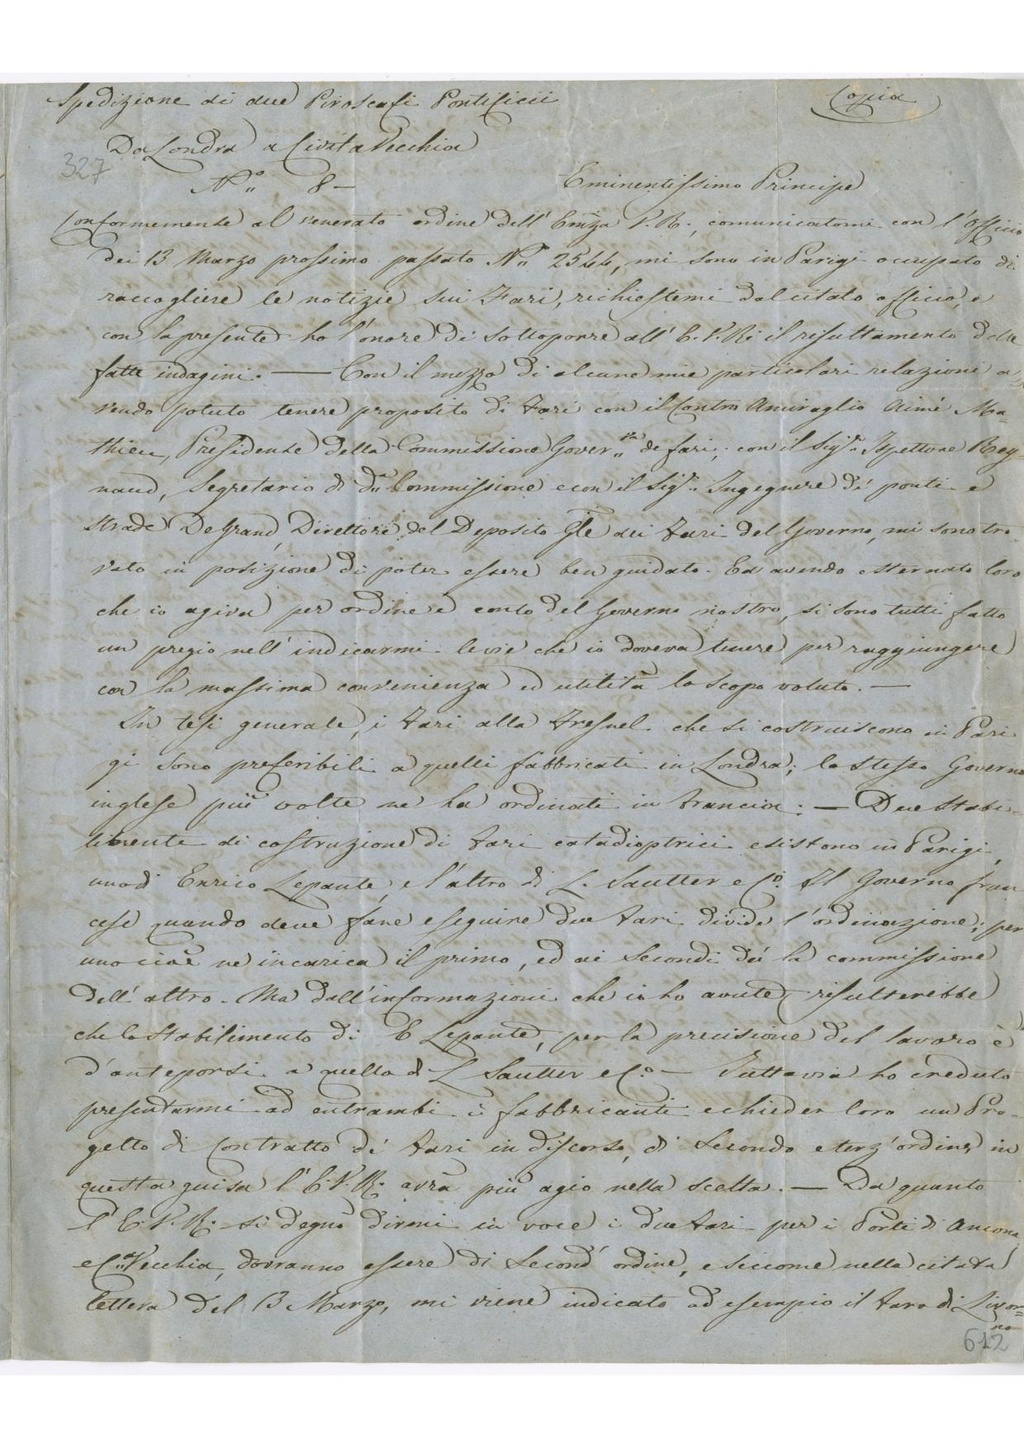 Spedizione di due Piroscafi Pontificii
Copia
Da Londra a CivitaVecchia
327
N.° 8 —
Eminentissimo Principe
Conformemente al venerato ordine dell' Emza V. R., comunicatomi con l'Officio
dei 13 Marzo prossimo passato N.° 2544, mi sono in Parigi occupato di
raccogliere le notizie sui Fari, richiestemi dal citato officio, e
con la presente ho l'onore di sottoporre all' E. V. R. il risultamento delle
fatte indagini. — Con il mezzo di alcune mie particolari relazioni a-
vendo potuto tenere proposito di Fari con il Contro Amiraglio Aimé Ma-
thieu, Presidente della Commissione Gover.va de fari, con il Sig.r Ispettore Rey-
naud, Segretario di d.a Commissione e con il Sig.r Ingegnere di ponti e
strade DeGrand, Direttore del Deposito Gle dei Fari del Governo, mi sono tro-
vato in posizione di poter essere ben guidato. Ed avendo esternato loro
che io agiva per ordine e conto del Governo nostro, si sono tutti fatto
un pregio nell' indicarmi le vie che io doveva tenere per raggiungere
con la massima convenienza ed utilità lo scopo voluto. —
In tesi generale, i Fari alla Fresnel che si costruiscono in Pari-
gi sono preferibili a quelli fabbricati in Londra; lo stesso Governo
inglese più volte ne ha ordinati in Francia. — Due Stabi-
limenti di costruzione di Fari catadioptrici esistono in Parigi,
uno di Enrico Lepante, e l'altro di L. Sautter e C.° Il Governo fran-
cese quando deve fare eseguire due Fari divide l'ordinazione; per
uno cioè ne incarica il primo, ed ai secondi dà la commissione
dell' altro. Ma dall' informazioni che io ho avute risulterebbe
che lo Stabilimento di E Lepante, per la precisione del lavoro è
d'anteporsi a quello di L Sautter e C.° — Tuttavia ho creduto
presentarmi ad entrambi i fabbricanti e chieder loro un Pro-
getto di Contratto de' Fari in discorso, di Secondo e terz' ordine, in
questa guisa l' E. V. R. avrà più agio nella scelta. — Da quanto
l' E. V. R. si degnò dirmi in voce i due Fari per i Porti di Ancona
e C.a Vecchia, dovranno essere di Second' ordine, e siccome nella citata
lettera del 13 Marzo, mi viene indicato ad esempio il Faro di Livor-
no
612